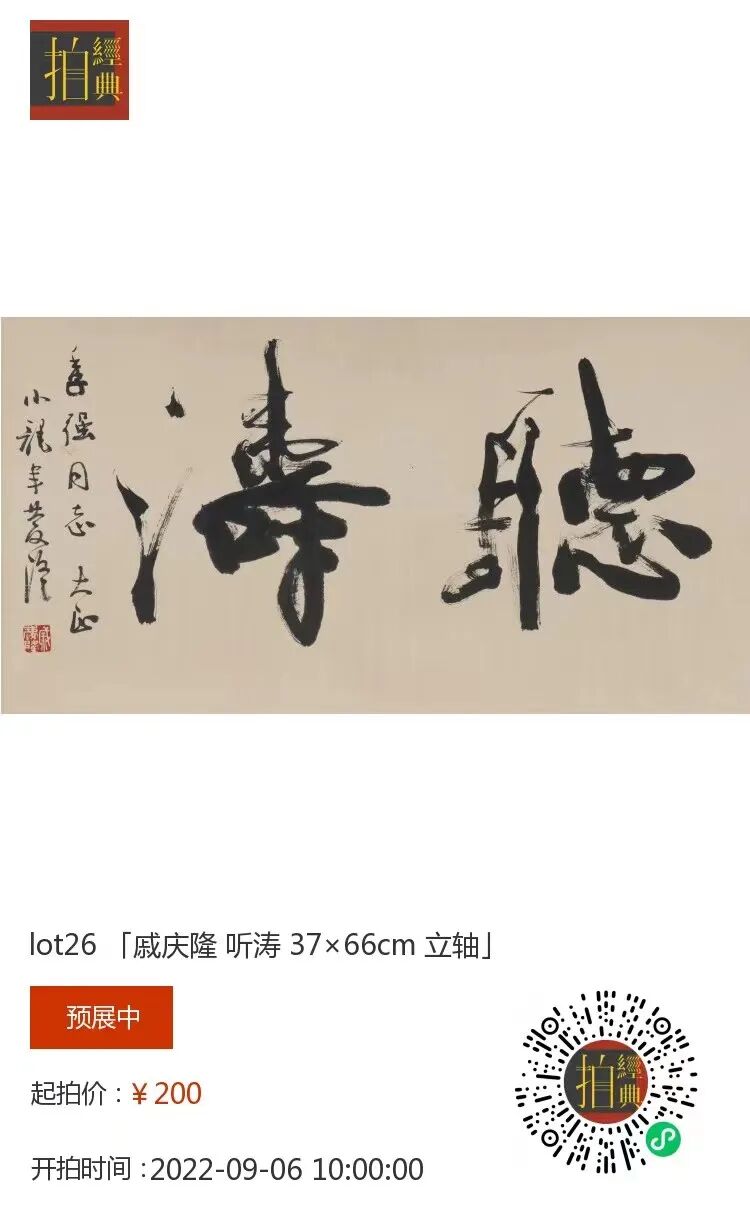 拍經典
聽濤
季強同志 大正
小龍年慶隆
lot26 「戚庆隆 听涛 37×66cm 立轴」
预展中
起拍价：¥200
开拍时间：2022-09-06 10:00:00
拍經典